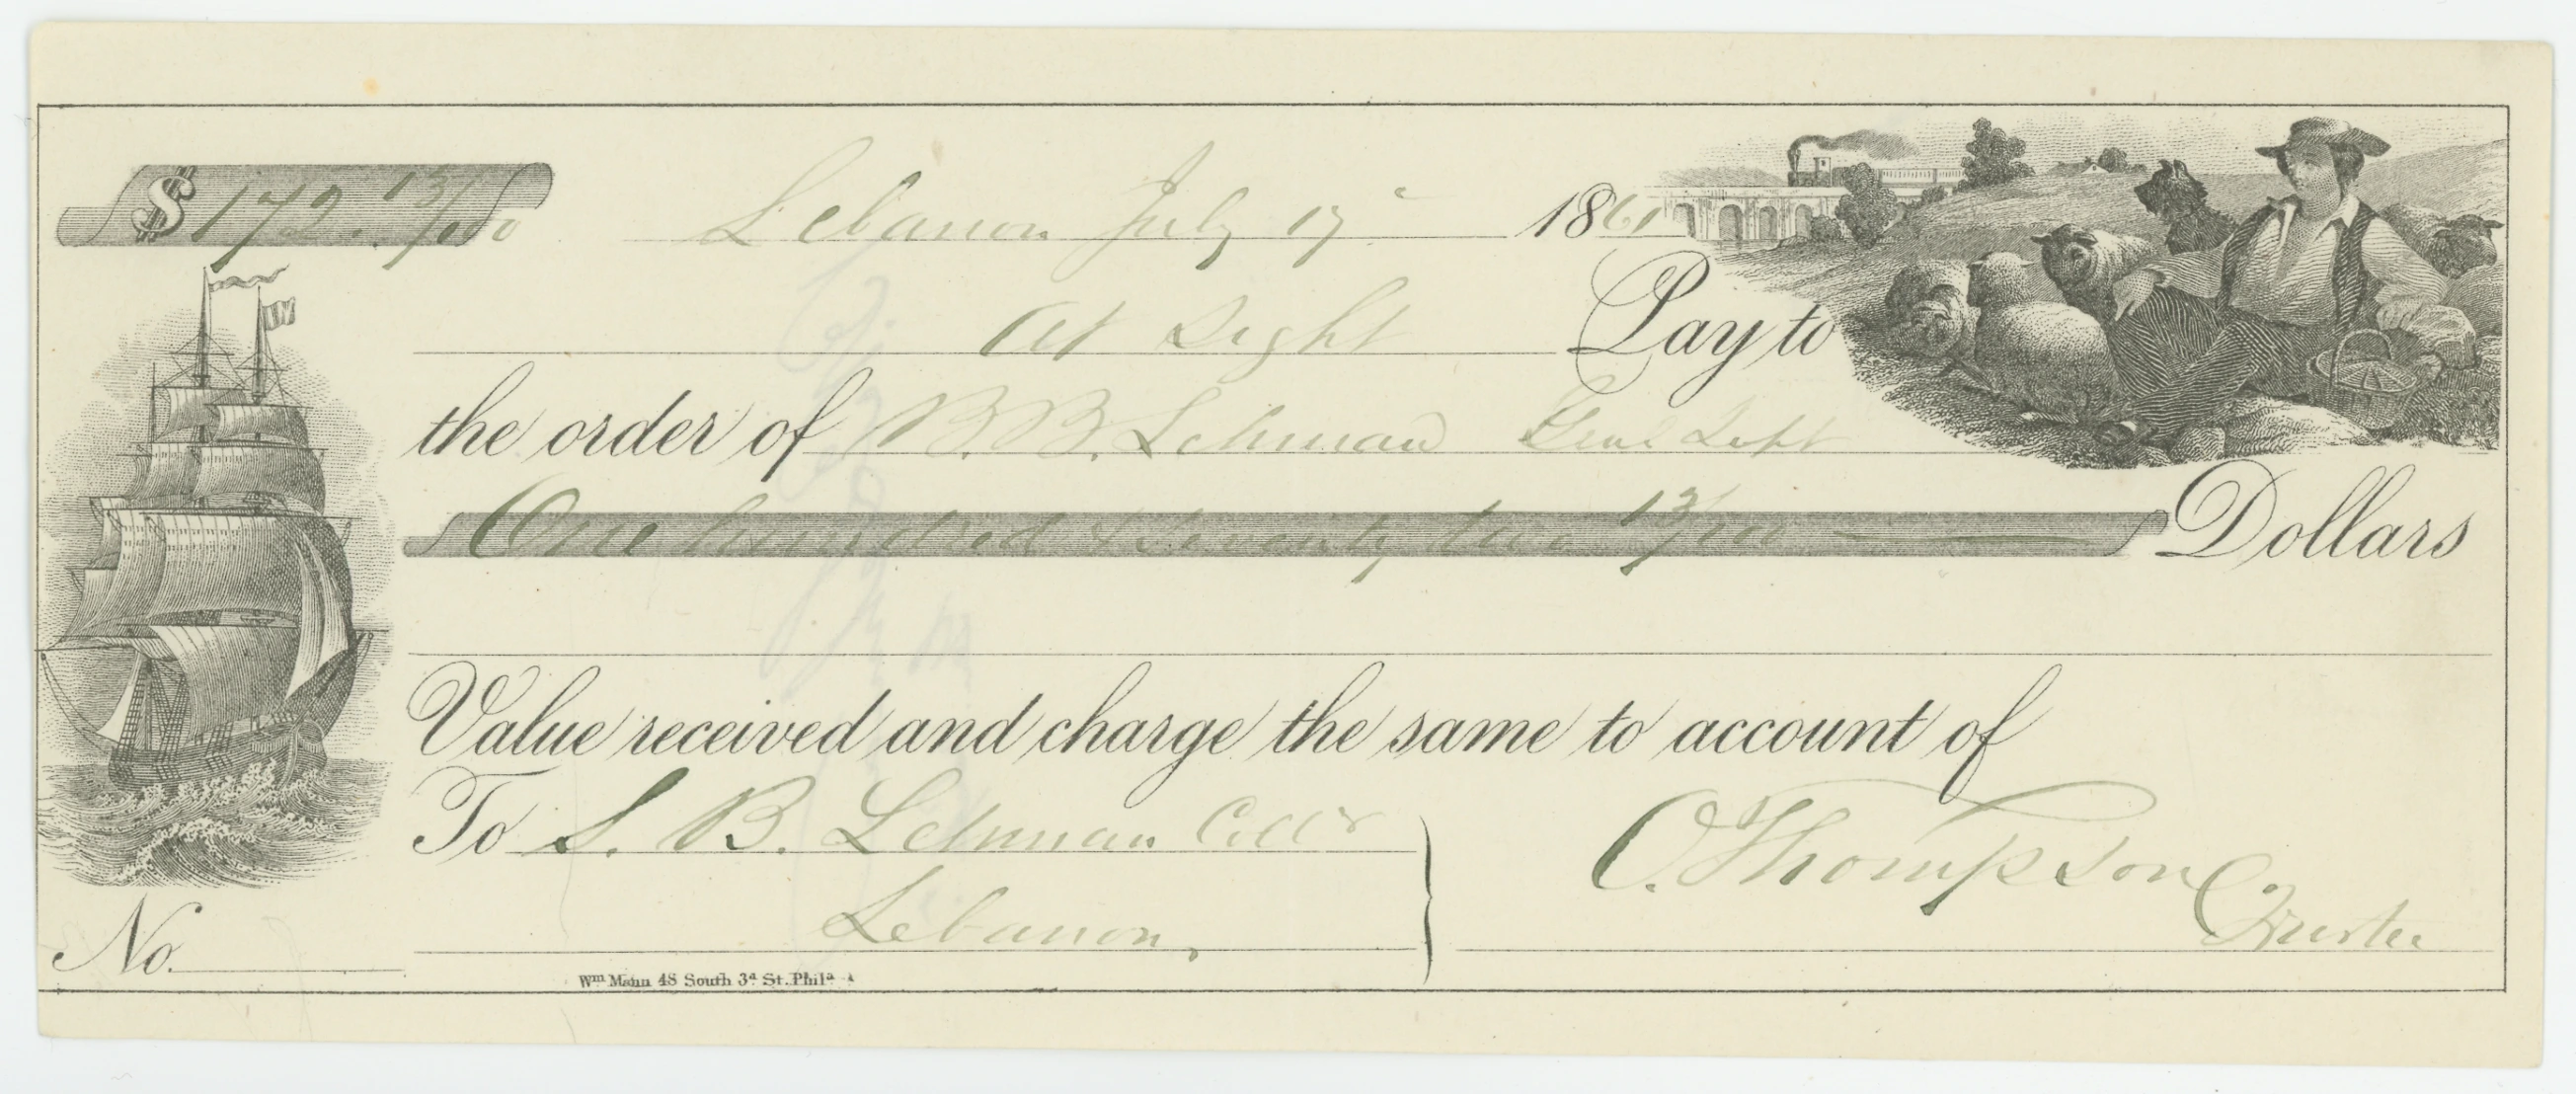 $ 172. 13/100
Lebanon July 17" 1861
At Sight Pay to
the order of B. B. Lehman Genl Supt
One hundred & Seventy two 13/100 Dollars
Value received and charge the same to account of
To S. B. Lehman Collr
C. Thompson
Lebanon,
Trustee
No.
Wm Mann 48 South 3d St. Phila